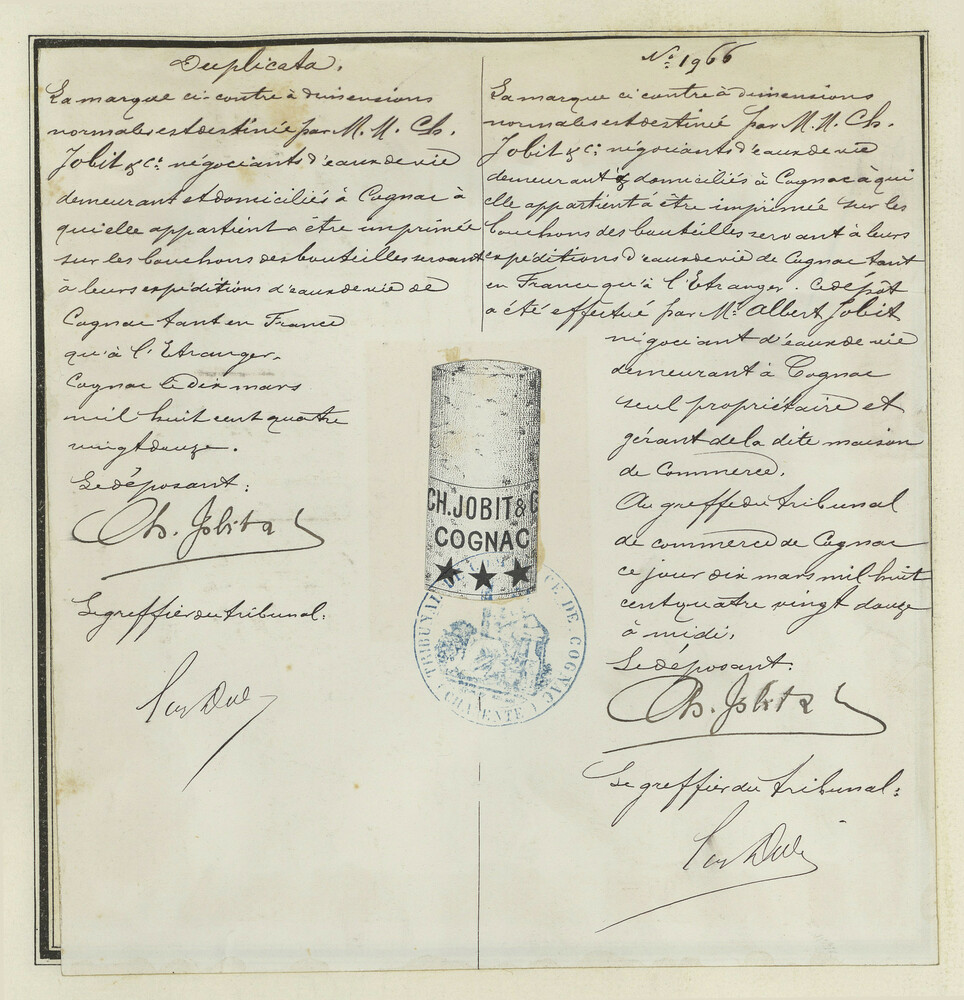 Duplicata.
La marque ci-contre à dimensions
normales est destinée par M. M. Ch.
Jobit & Cie négociants d'eaux de vie
demeurant et domiciliés à Cognac à
qui elle appartient à être imprimée
sur les bouchons des bouteilles servant
à leurs expéditions d'eaux de vie de
Cognac tant en France
qu'à l'Etranger.
Cognac le dix mars
mil huit cent quatre
vingt douze.
Le déposant:
Ch. Jobit &
Le greffier du tribunal.
No: 1966
La marque ci contre à dimensions
normales est destinée par M. M. Ch.
Jobit & Cie négociants d'eaux de vie
demeurant & domiciliés à Cognac à qui
elle appartient à être imprimée sur les
bouchons des bouteilles servant à leurs
expéditions d'eaux de vie de Cognac tant
en France qu'à l'Etranger. Ce dépôt
a été effectué par Mr Albert Jobit
négociant d'eaux de vie
demeurant à Cognac
seul propriétaire et
gérant de la dite maison
de Commerce.
Au greffe du tribunal
de commerce de Cognac
ce jour dix mars mil huit
cent quatre vingt douze
à midi.
Le déposant.
Ch. Jobit &
Le greffier du tribunal:
CH. JOBIT & C
COGNAC
TRIBUNAL DE COMMERCE DE COGNAC
CHARENTE